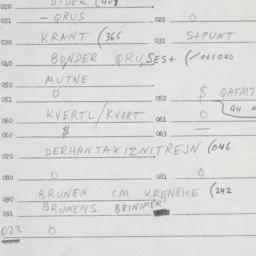 020 DIDER (404
021 - QRUS 022 0
030 KRANT (366 031 S+PUNT
040 BONDER QRUSES+ (/001040
050 MUTNE
051 0 052 $ QAFMT
060 KVERTL/KVORT 061 0 QH
062 $ 063 —
070 DERHANTAXIZNITREJN (046
080 0 081 0
090 BRUNEN CM KRENSICE (242
091 BRUNENS BRINIMER
023 0